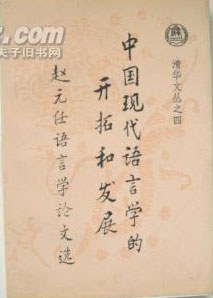 清华文丛之四
中国现代语言学的
开拓和发展
赵元任语言学论文选
z.com
夫子旧书网